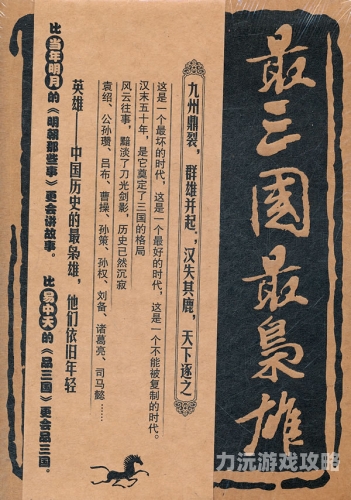 最三國最枭雄
九州鼎裂，群雄并起；汉失其鹿，天下逐之
这是一个最坏的时代，这是一个最好的时代，这是一个不能被复制的时代。
汉末五十年，是它奠定了三国的格局
风云往事，黯淡了刀光剑影，历史已然沉寂
袁绍、公孙瓒、吕布、曹操、孙策、孙权、刘备、诸葛亮、司马懿……
英雄——中国历史的最枭雄，他们依旧年轻
比当年明月的《明朝那些事》更会讲故事。
比易中天的《品三国》更会品三国。
力沅游戏攻略